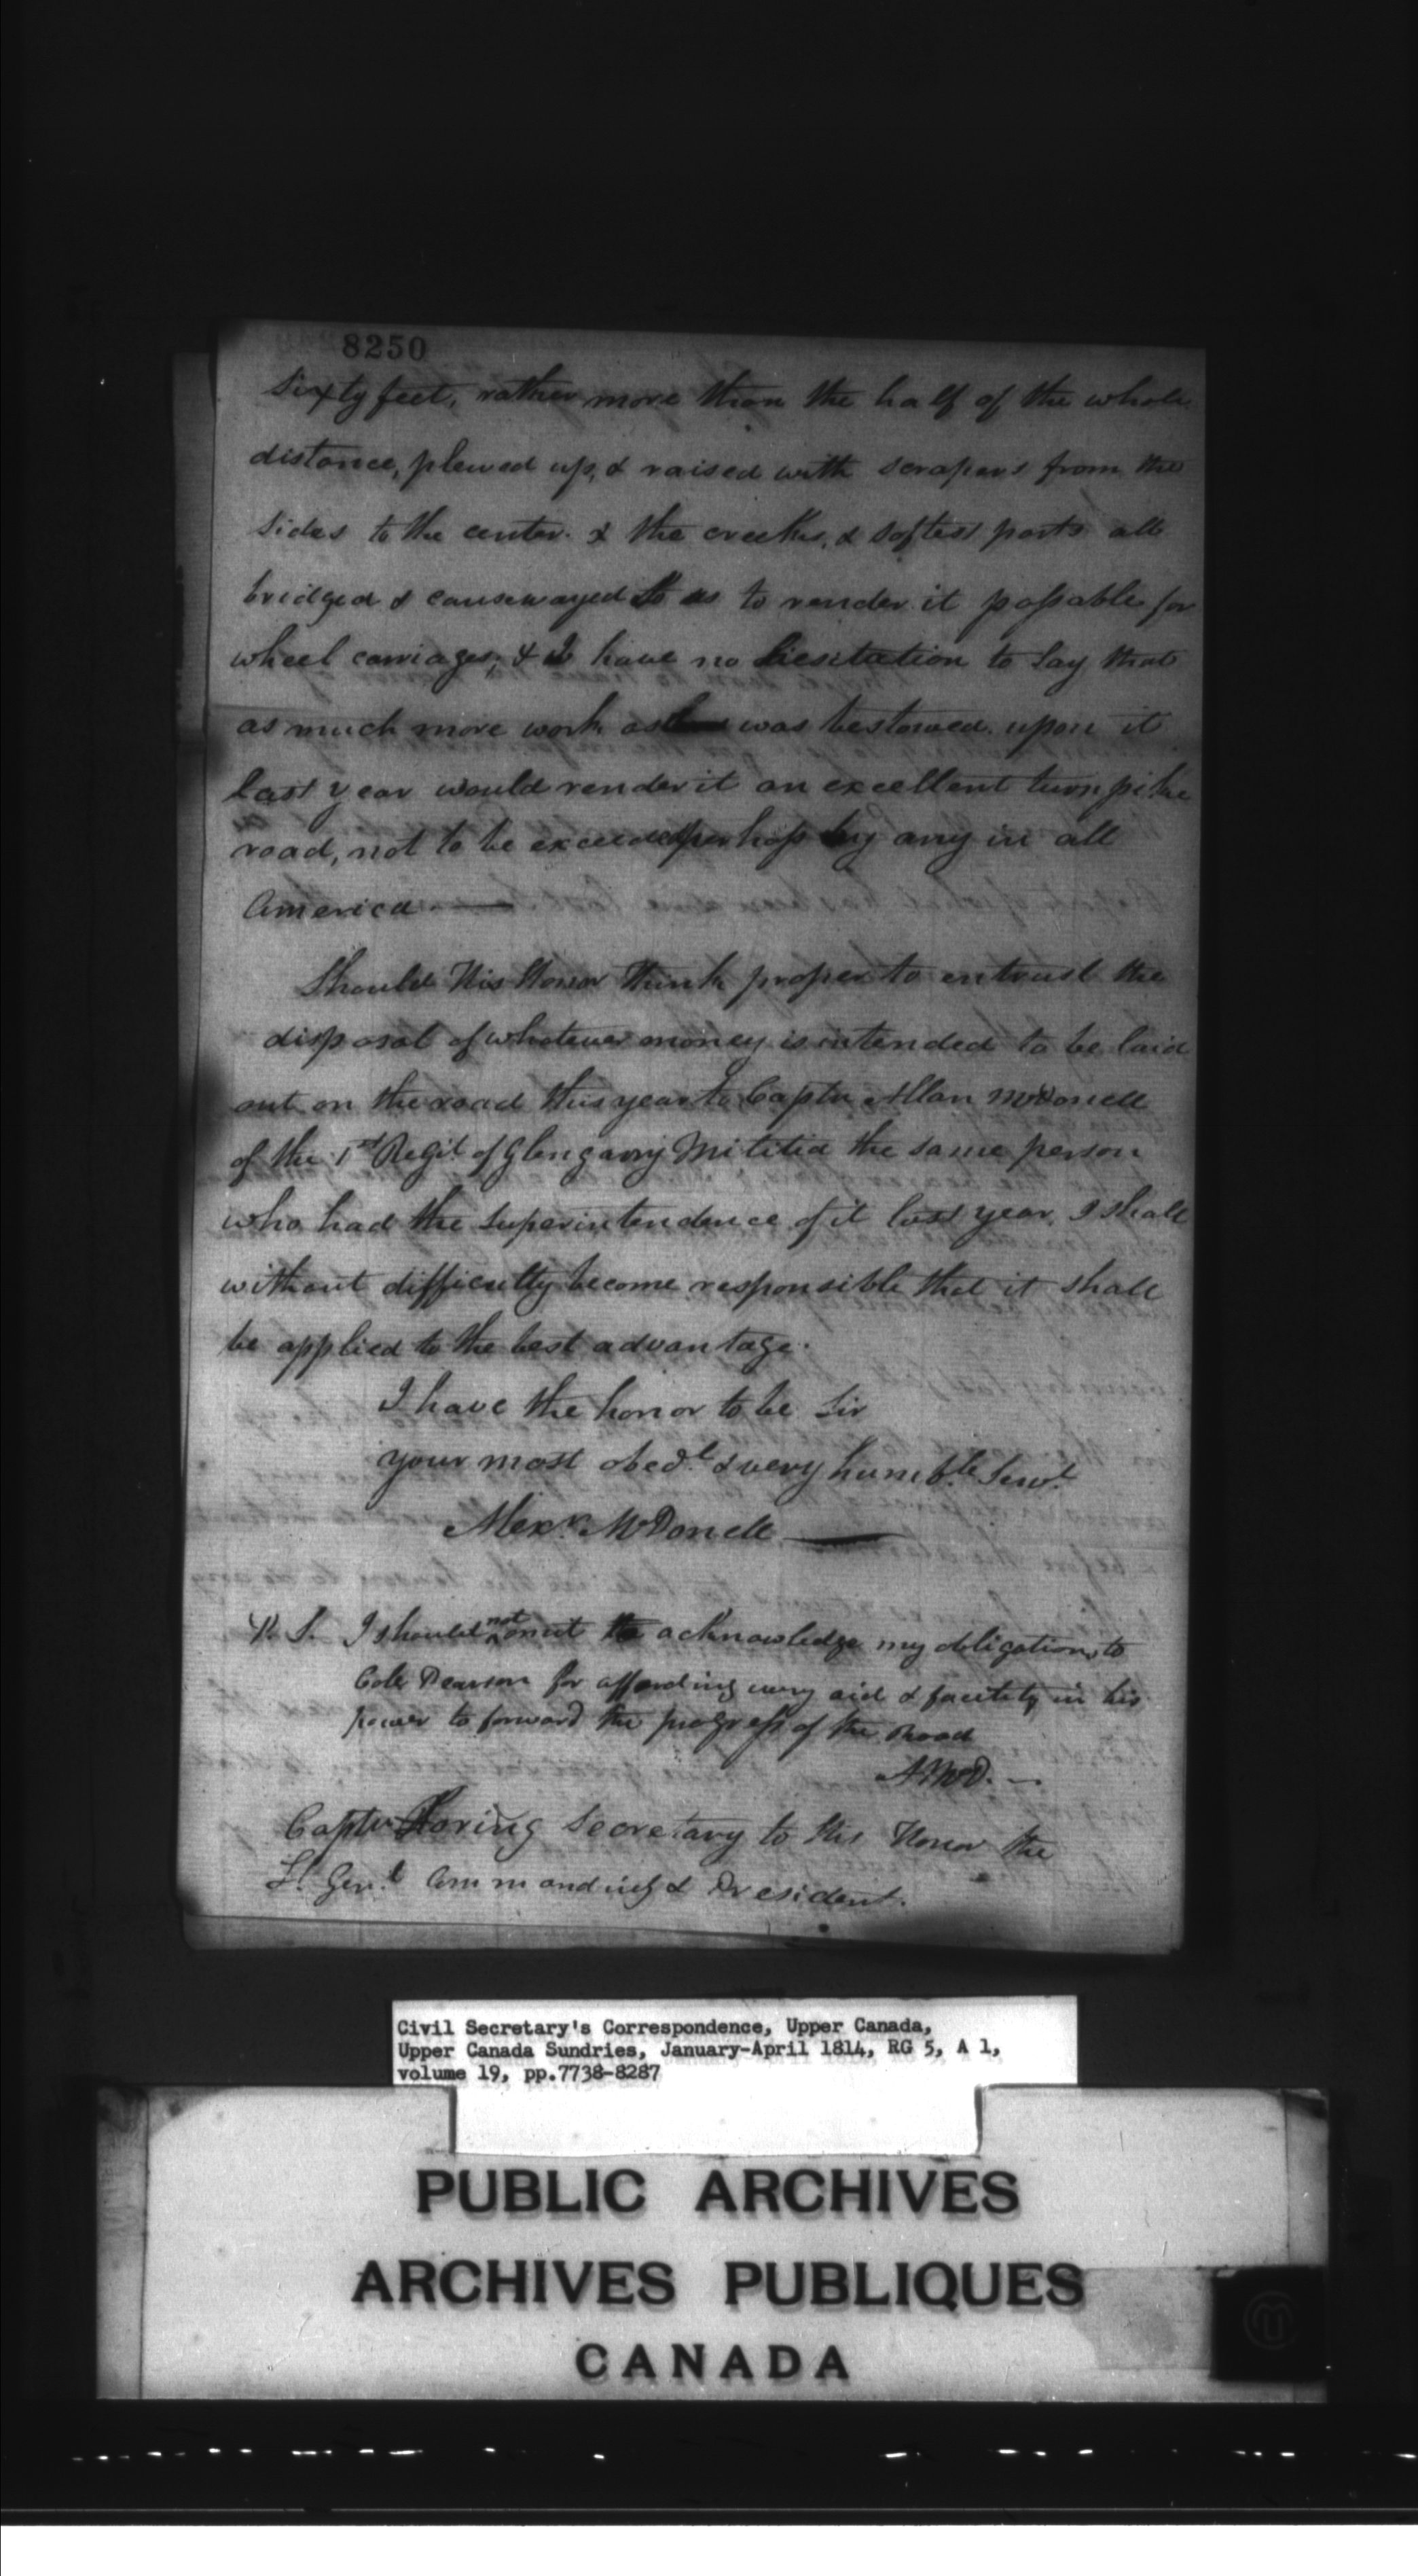 8250
sixty feet, rather more than the half of the whole
distance, plewed up, & raised with scrapers from the
sides to the center. & the creeks, & softest parts all
bridged & causewayed So as to render it passable for
wheel carriages, & I have no hesitation to say that
as much more work as was bestowed upon it
last year would render it an excellent turnpike
road, not to be exceeded perhaps by any in all
America.
Should His Honor think proper to entrust the
disposal of whatever money is intended to be laid
out on the road this year to Captn Allan McDonell
of the 1st Regt. of Glengarry Militia the same person
who had the superintendence of it last year, I shall
without difficulty become responsible that it shall
be applied to the best advantage.
I have the honor to be Sir
your most obedt. & very humble. Servt.
Alexr. McDonell
P. S. I should not omit to acknowledge my obligations to
Coll Pearson for affording every aid & facility in his
power to forward the progress of the Road
A. McD.
Captn Loring Secretary to His Honor the
Lt. Genl. Commanding & President.
Civil Secretary's Correspondence, Upper Canada,
Upper Canada Sundries, January-April 1814, RG 5, A 1,
volume 19, pp.7738-8287
PUBLIC ARCHIVES
ARCHIVES PUBLIQUES
CANADA